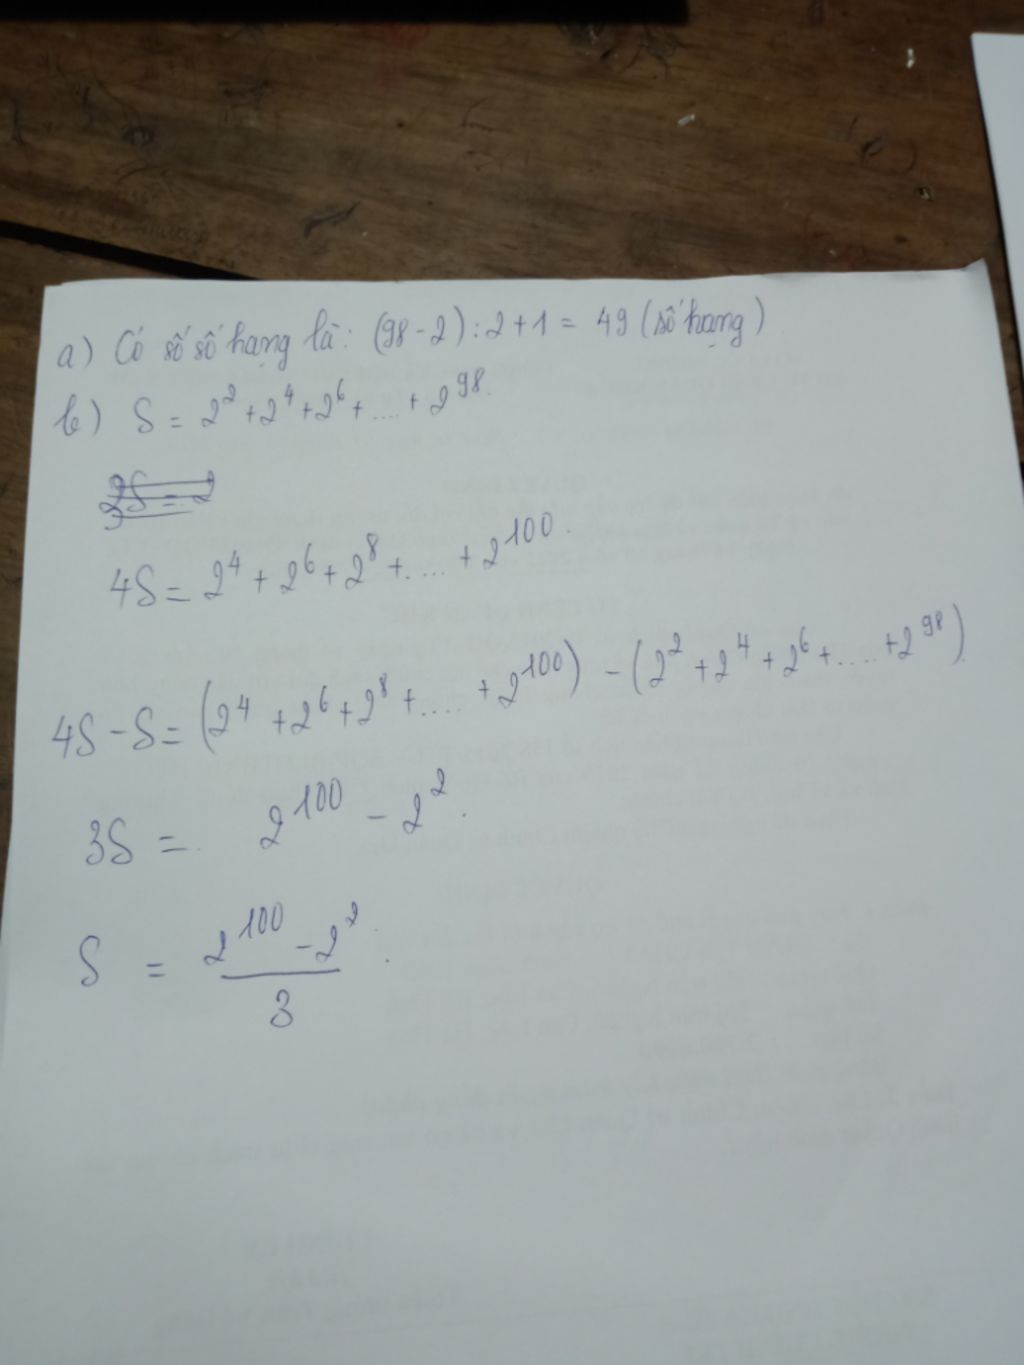 a) Có số số hạng là: (98-2):2+1 = 49 (số hạng)
b) S = 2² + 2⁴ + 2⁶ + .... + 2⁹⁸.
4S = 2⁴ + 2⁶ + 2⁸ + .... + 2¹⁰⁰.
4S - S = (2⁴ + 2⁶ + 2⁸ + .... + 2¹⁰⁰) - (2² + 2⁴ + 2⁶ + .... + 2⁹⁸).
3S = 2¹⁰⁰ - 2².
S = 2¹⁰⁰ - 2².
3